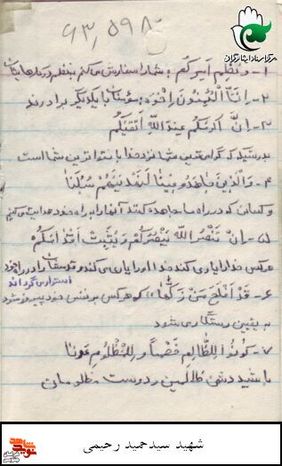 ۶۳٫۵۹۸۰
۱- و نظم امرکم: شما را سفارش می‌کنم بنظم در کارهایتان
۲- انما المؤمنون اخوه: مؤمنان با یکدیگر برادرند
۳- ان اکرمکم عند الله اتقیکم
بدرستیکه گرامی‌ترین شما نزد خدا با تقواترین شما است
۴- والذین جاهدوا فینا لنهدینهم سبلنا
و کسانی که در راه ما مجاهده کنند آنها را براه خود هدایت می‌کنیم
۵- ان تنصر الله ینصرکم و یثبت اقدامکم
هرکس خدا را یاری کند خدا او را یاری می‌کند و قدمهایش را در راه خود
استوار می‌گرداند
۶- قد افلح من زکها: که هرکس بر نفس خود پیروز شود
بر یقین رستگار می‌شود
۷- کونوا للظالم خصما و للمظلوم عونا
باشید دشمن ظالمین و دوست مظلومان
شهید سیدحمید رحیمی